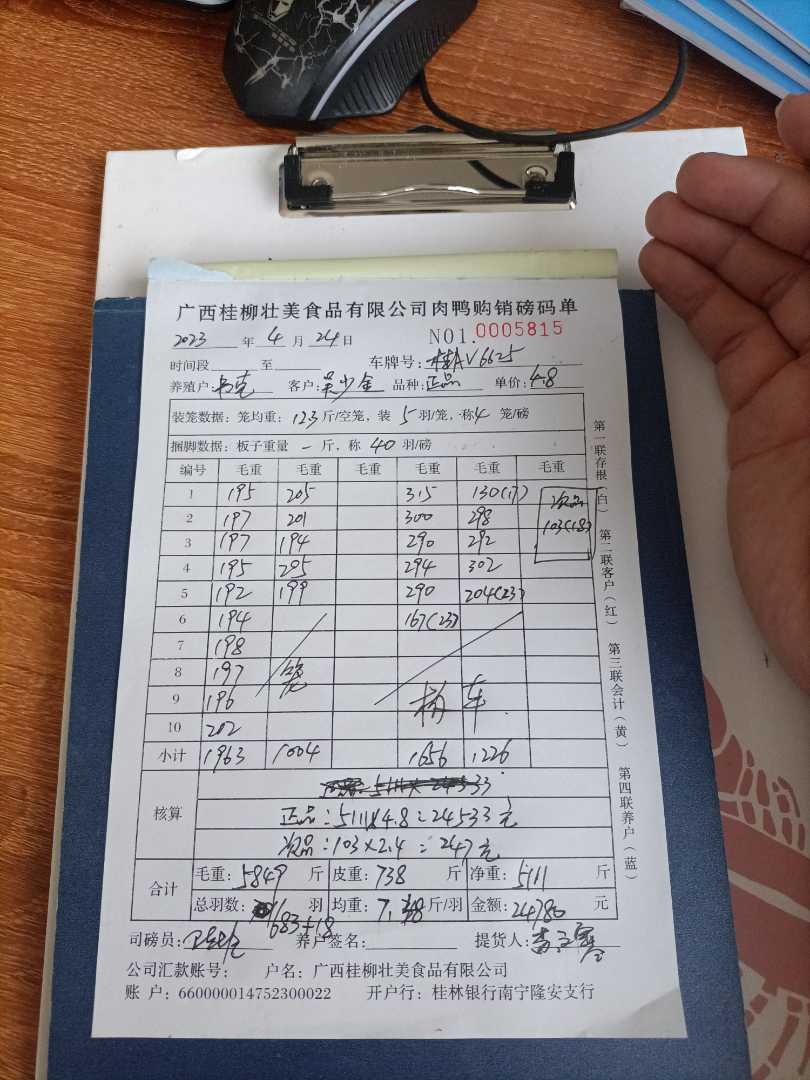 广西桂柳壮美食品有限公司肉鸭购销磅码单
2023 年 4 月 24 日 NO1.0005815
时间段 至 车牌号: 桂AV6625
养殖户: 客户:吴少金 品种:正品 单价:4.8
装笼数据: 笼均重: 123 斤/空笼, 装 5 羽/笼, 称 4 笼/磅
捆脚数据: 板子重量 - 斤, 称 40 羽/磅
编号 毛重 毛重 毛重 毛重 毛重 毛重
1 195 205 315 130(17) 次品
2 197 201 300 298 103(18)
3 197 194 290 292
4 195 205 294 302
5 192 199 290 204(23)
6 194 167(23)
7 198
8 197 笼
9 196 车
10 202
小计 1963 1004 1656 1226
核算
正品:5111×4.8=24533元
次品:103×2.4=247元
合计 毛重:5849 斤 皮重:738 斤 净重:5111 斤
总羽数: 683+18 羽 均重: 斤/羽 金额:24780 元
司磅员: 养户签名: 提货人:
公司汇款账号: 户名: 广西桂柳壮美食品有限公司
账 户: 660000014752300022 开户行: 桂林银行南宁隆安支行
第一联存根(白) 第二联客户(红) 第三联会计(黄) 第四联养户(蓝)